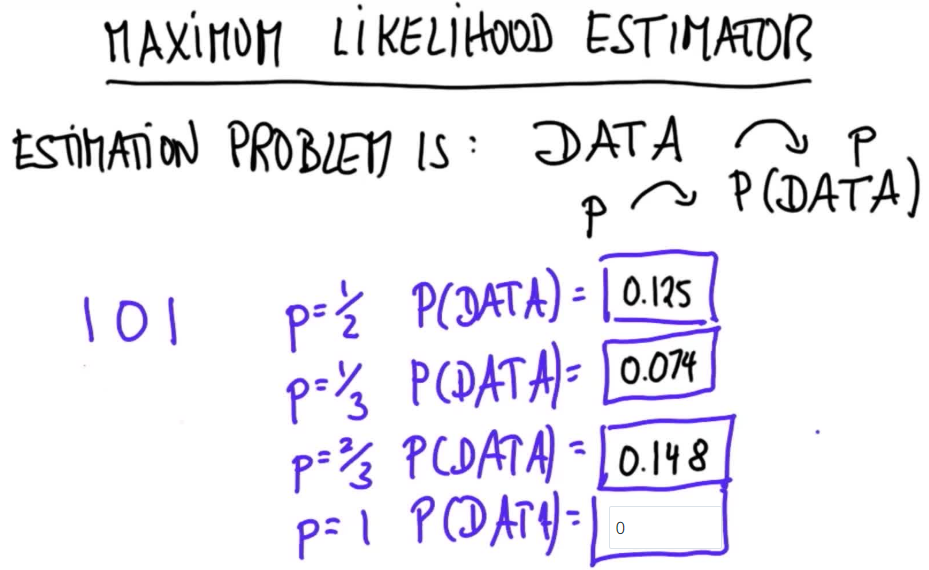 MAXIMUM LIKELIHOOD ESTIMATOR
ESTIMATION PROBLEM IS: DATA ↷ P
P ↷ P(DATA)
101 P=1/2 P(DATA)= 0.125
P=1/3 P(DATA)= 0.074
P=2/3 P(DATA)= 0.148
P=1 P(DATA)= 0